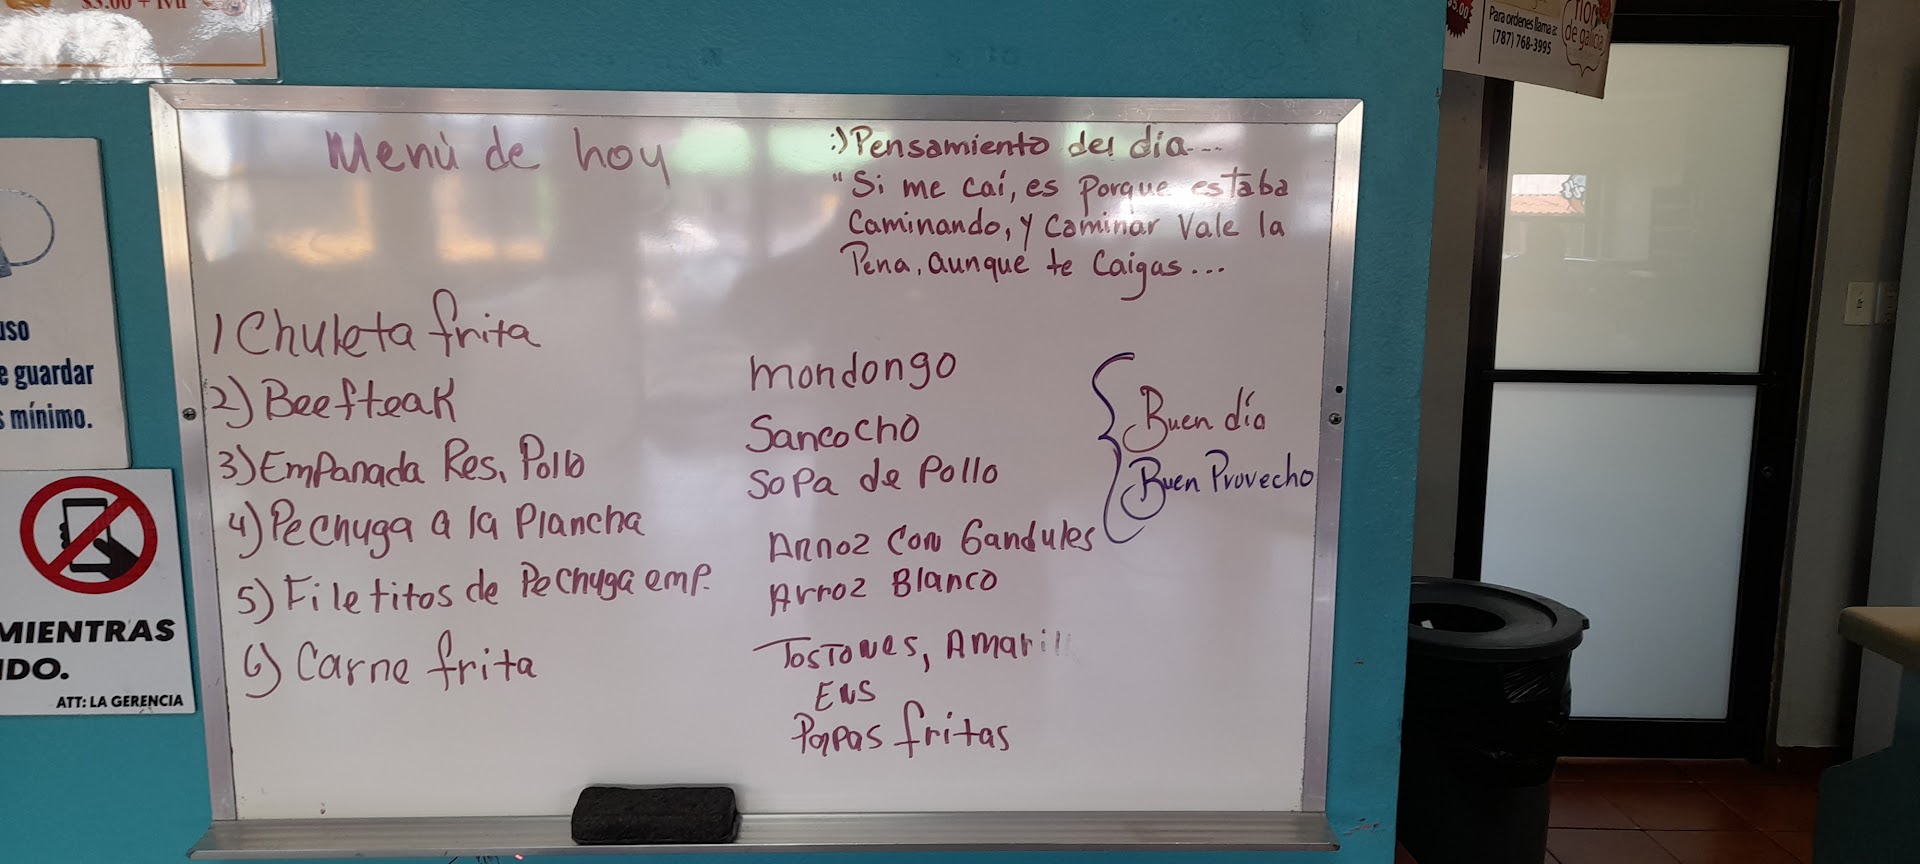 $3.00 + IVU
Para ordenes llama a:
(787) 768-3995
flor
de galicia
Menú de hoy
:) Pensamiento del día...
"Si me caí, es porque estaba
Caminando, y Caminar Vale la
Pena, aunque te Caigas...
1 Chuleta frita
2) Beefteak
3) Empanada Res, Pollo
4) Pechuga a la Plancha
5) Filetitos de Pechuga emp.
6) Carne frita
mondongo
Sancocho
Sopa de Pollo
Arroz Con Gandules
Arroz Blanco
Tostones, Amaril
ENS
Papas fritas
Buen día
Buen Provecho
uso
e guardar
mínimo.
MIENTRAS
DO.
ATT: LA GERENCIA